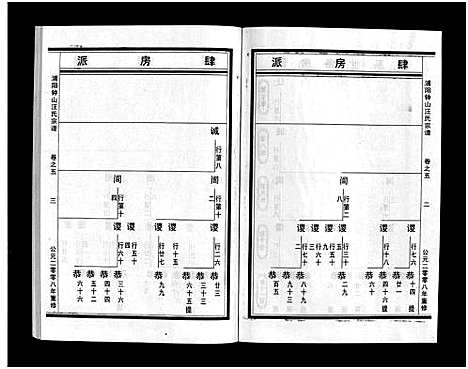 肆房派
浦阳钟山汪氏宗谱
卷之五
二
公元二零零八年重修
訚
行第二
八
谡
行七六
谡
行十八
谡
行三十
谡
行七十
恭
十四
提
恭
廿一
恭
六四
恭
二九
恭
百五
肆房派
浦阳钟山汪氏宗谱
卷之五
三
公元二零零八年重修
诚
行第八
訚
二
行第十
訚
四
行第十
谡
行二六
谡
行廿七
谡
行十五
谡
行五十
四
谡
行六十
恭
廿三
恭
三十三
恭
六十五
提
恭
九九
恭
三十六
恭
四十四
恭
五十二
恭
六十六